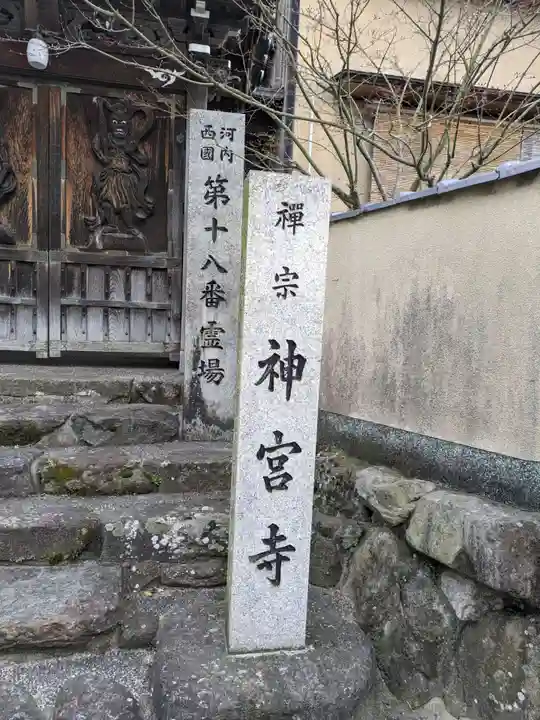 禪宗 神宮寺
河内
西國
第十八番霊場